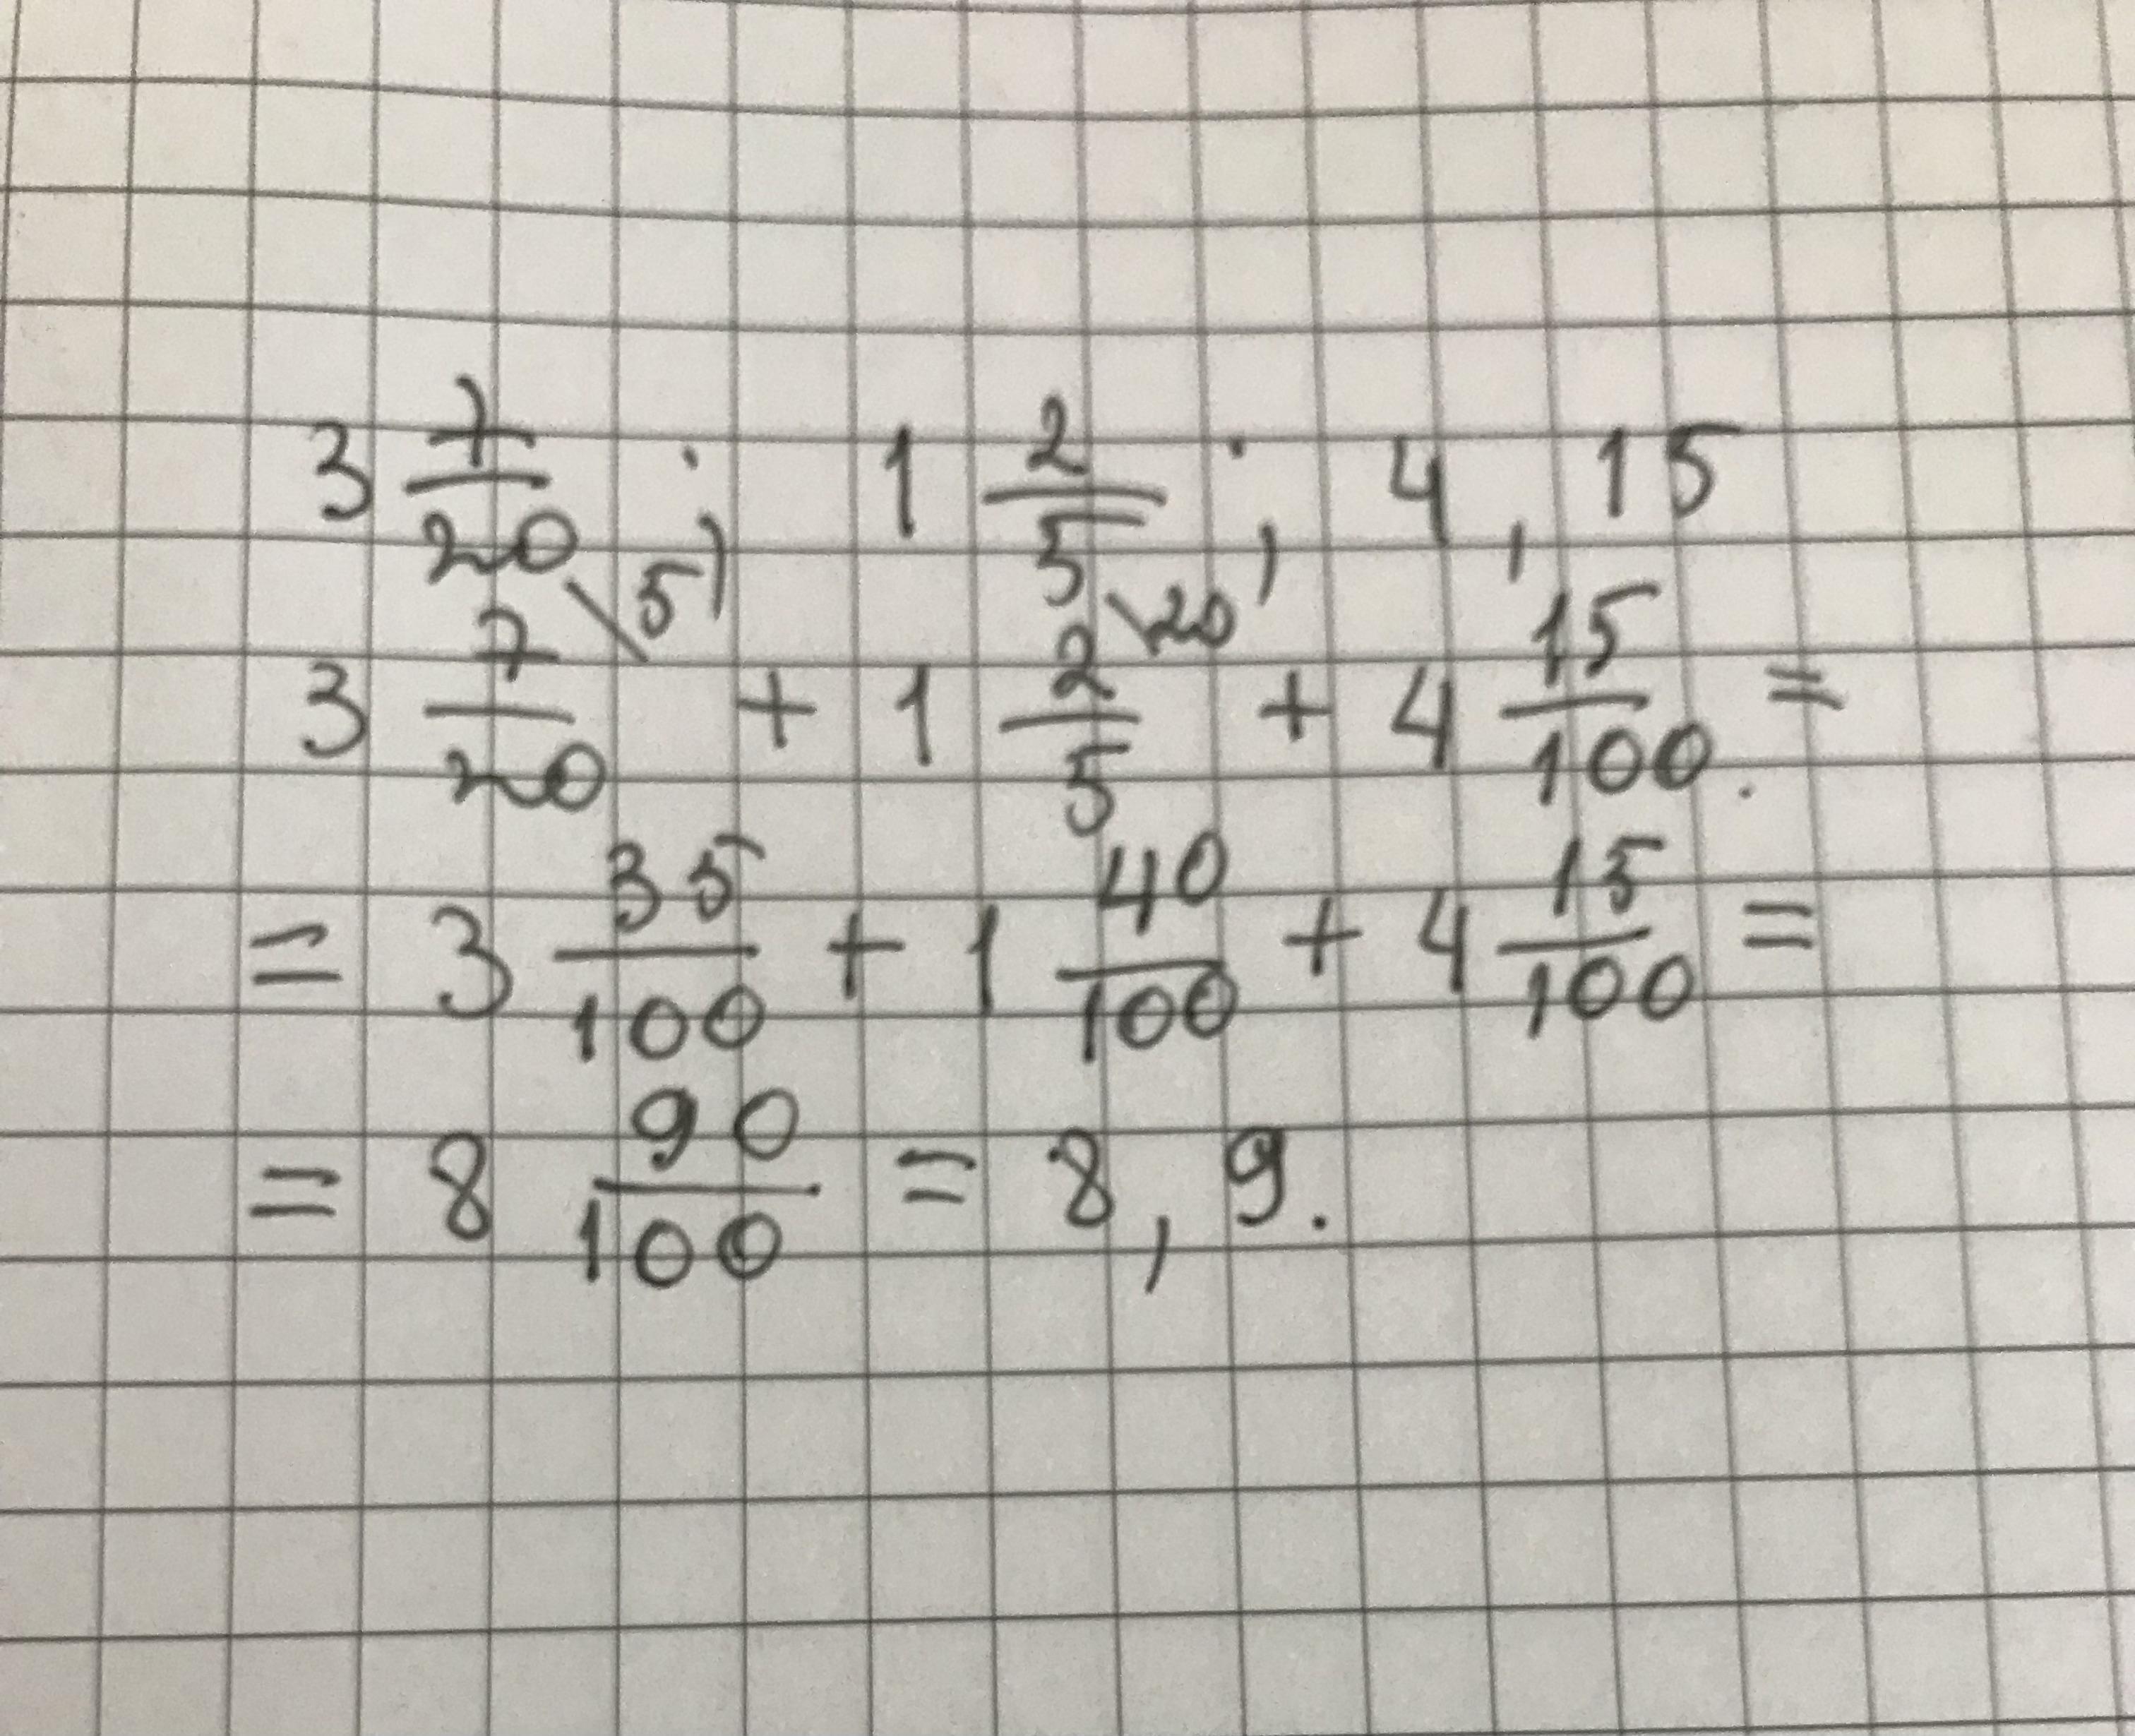 3 7/20 ; 1 2/5 ; 4,15
3 7/20 \5 + 1 2/5 \20 + 4 15/100 =
= 3 35/100 + 1 40/100 + 4 15/100 =
= 8 90/100 = 8,9.